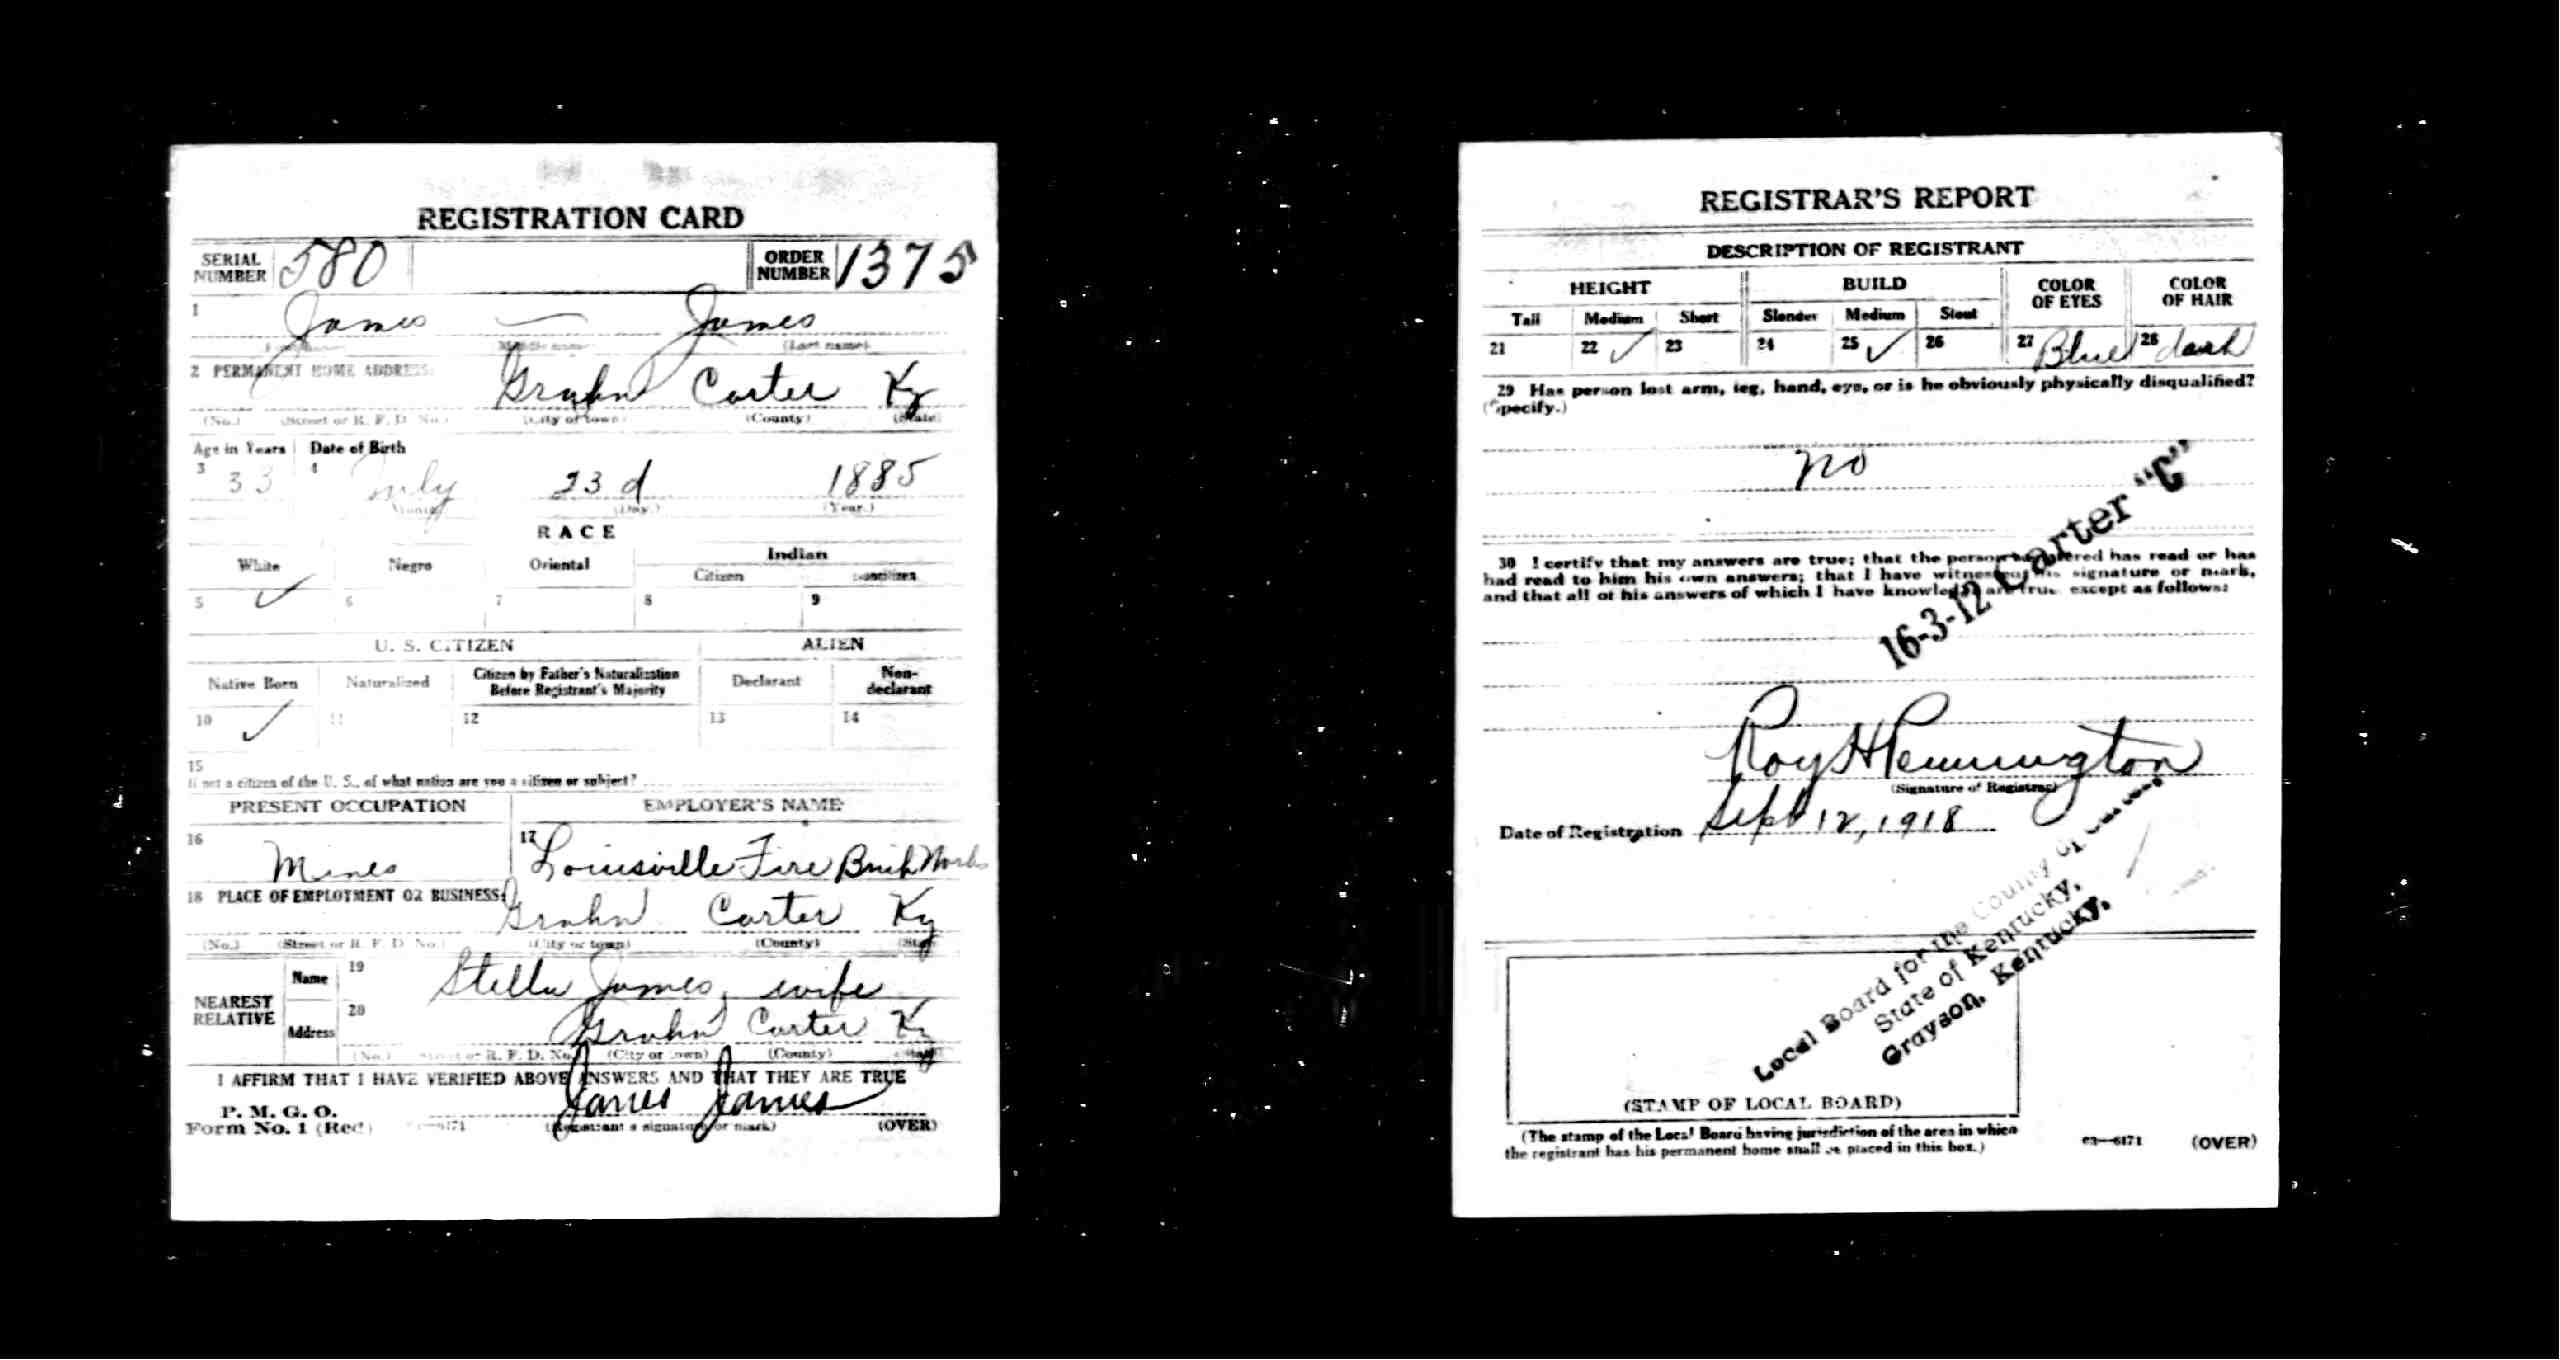 REGISTRATION CARD
SERIAL NUMBER 580 ORDER NUMBER 1375
1 James — James
(Last name)
2 PERMANENT HOME ADDRESS: Grahn Carter Ky
(No.) (Street or R. F. D. No.) (City or town) (County) (State)
Age in Years Date of Birth
3 33 4 July 23d 1885
(Month) (Day.) (Year.)
RACE
White Negro Oriental Indian
Citizen Noncitizen
5 ✓ 6 7 8 9
U. S. CITIZEN ALIEN
Native Born Naturalized Citizen by Father's Naturalization Before Registrant's Majority Declarant Non-declarant
10 ✓ 11 12 13 14
15
If not a citizen of the U. S., of what nation are you a citizen or subject?
PRESENT OCCUPATION EMPLOYER'S NAME
16 Mines 17 Louisville Fire Brick Works
18 PLACE OF EMPLOYMENT OR BUSINESS: Grahn Carter Ky
(No.) (Street or R. F. D. No.) (City or town) (County) (State)
NEAREST RELATIVE Name 19 Stella James, wife
Address 20 Grahn Carter Ky
(No.) (Street or R. F. D. No.) (City or town) (County) (State)
I AFFIRM THAT I HAVE VERIFIED ABOVE ANSWERS AND THAT THEY ARE TRUE
P. M. G. O.
Form No. 1 (Red) James James
(Registrant's signature or mark) (OVER)
REGISTRAR'S REPORT
DESCRIPTION OF REGISTRANT
HEIGHT BUILD COLOR OF EYES COLOR OF HAIR
Tall Medium Short Slender Medium Stout
21 22 ✓ 23 24 25 ✓ 26 27 Blue 28 dark
29 Has person lost arm, leg, hand, eye, or is he obviously physically disqualified?
(Specify.)
no
30 I certify that my answers are true; that the person registered has read or has
had read to him his own answers; that I have witnessed his signature or mark,
and that all of his answers of which I have knowledge are true, except as follows:
16-3-12 Carter "C"
Roy H Pennington
(Signature of Registrar)
Date of Registration Sept 12, 1918
Local Board for the County of
State of Kentucky,
Grayson, Kentucky.
(STAMP OF LOCAL BOARD)
(The stamp of the Local Board having jurisdiction of the area in which
the registrant has his permanent home shall be placed in this box.)
03—6171 (OVER)